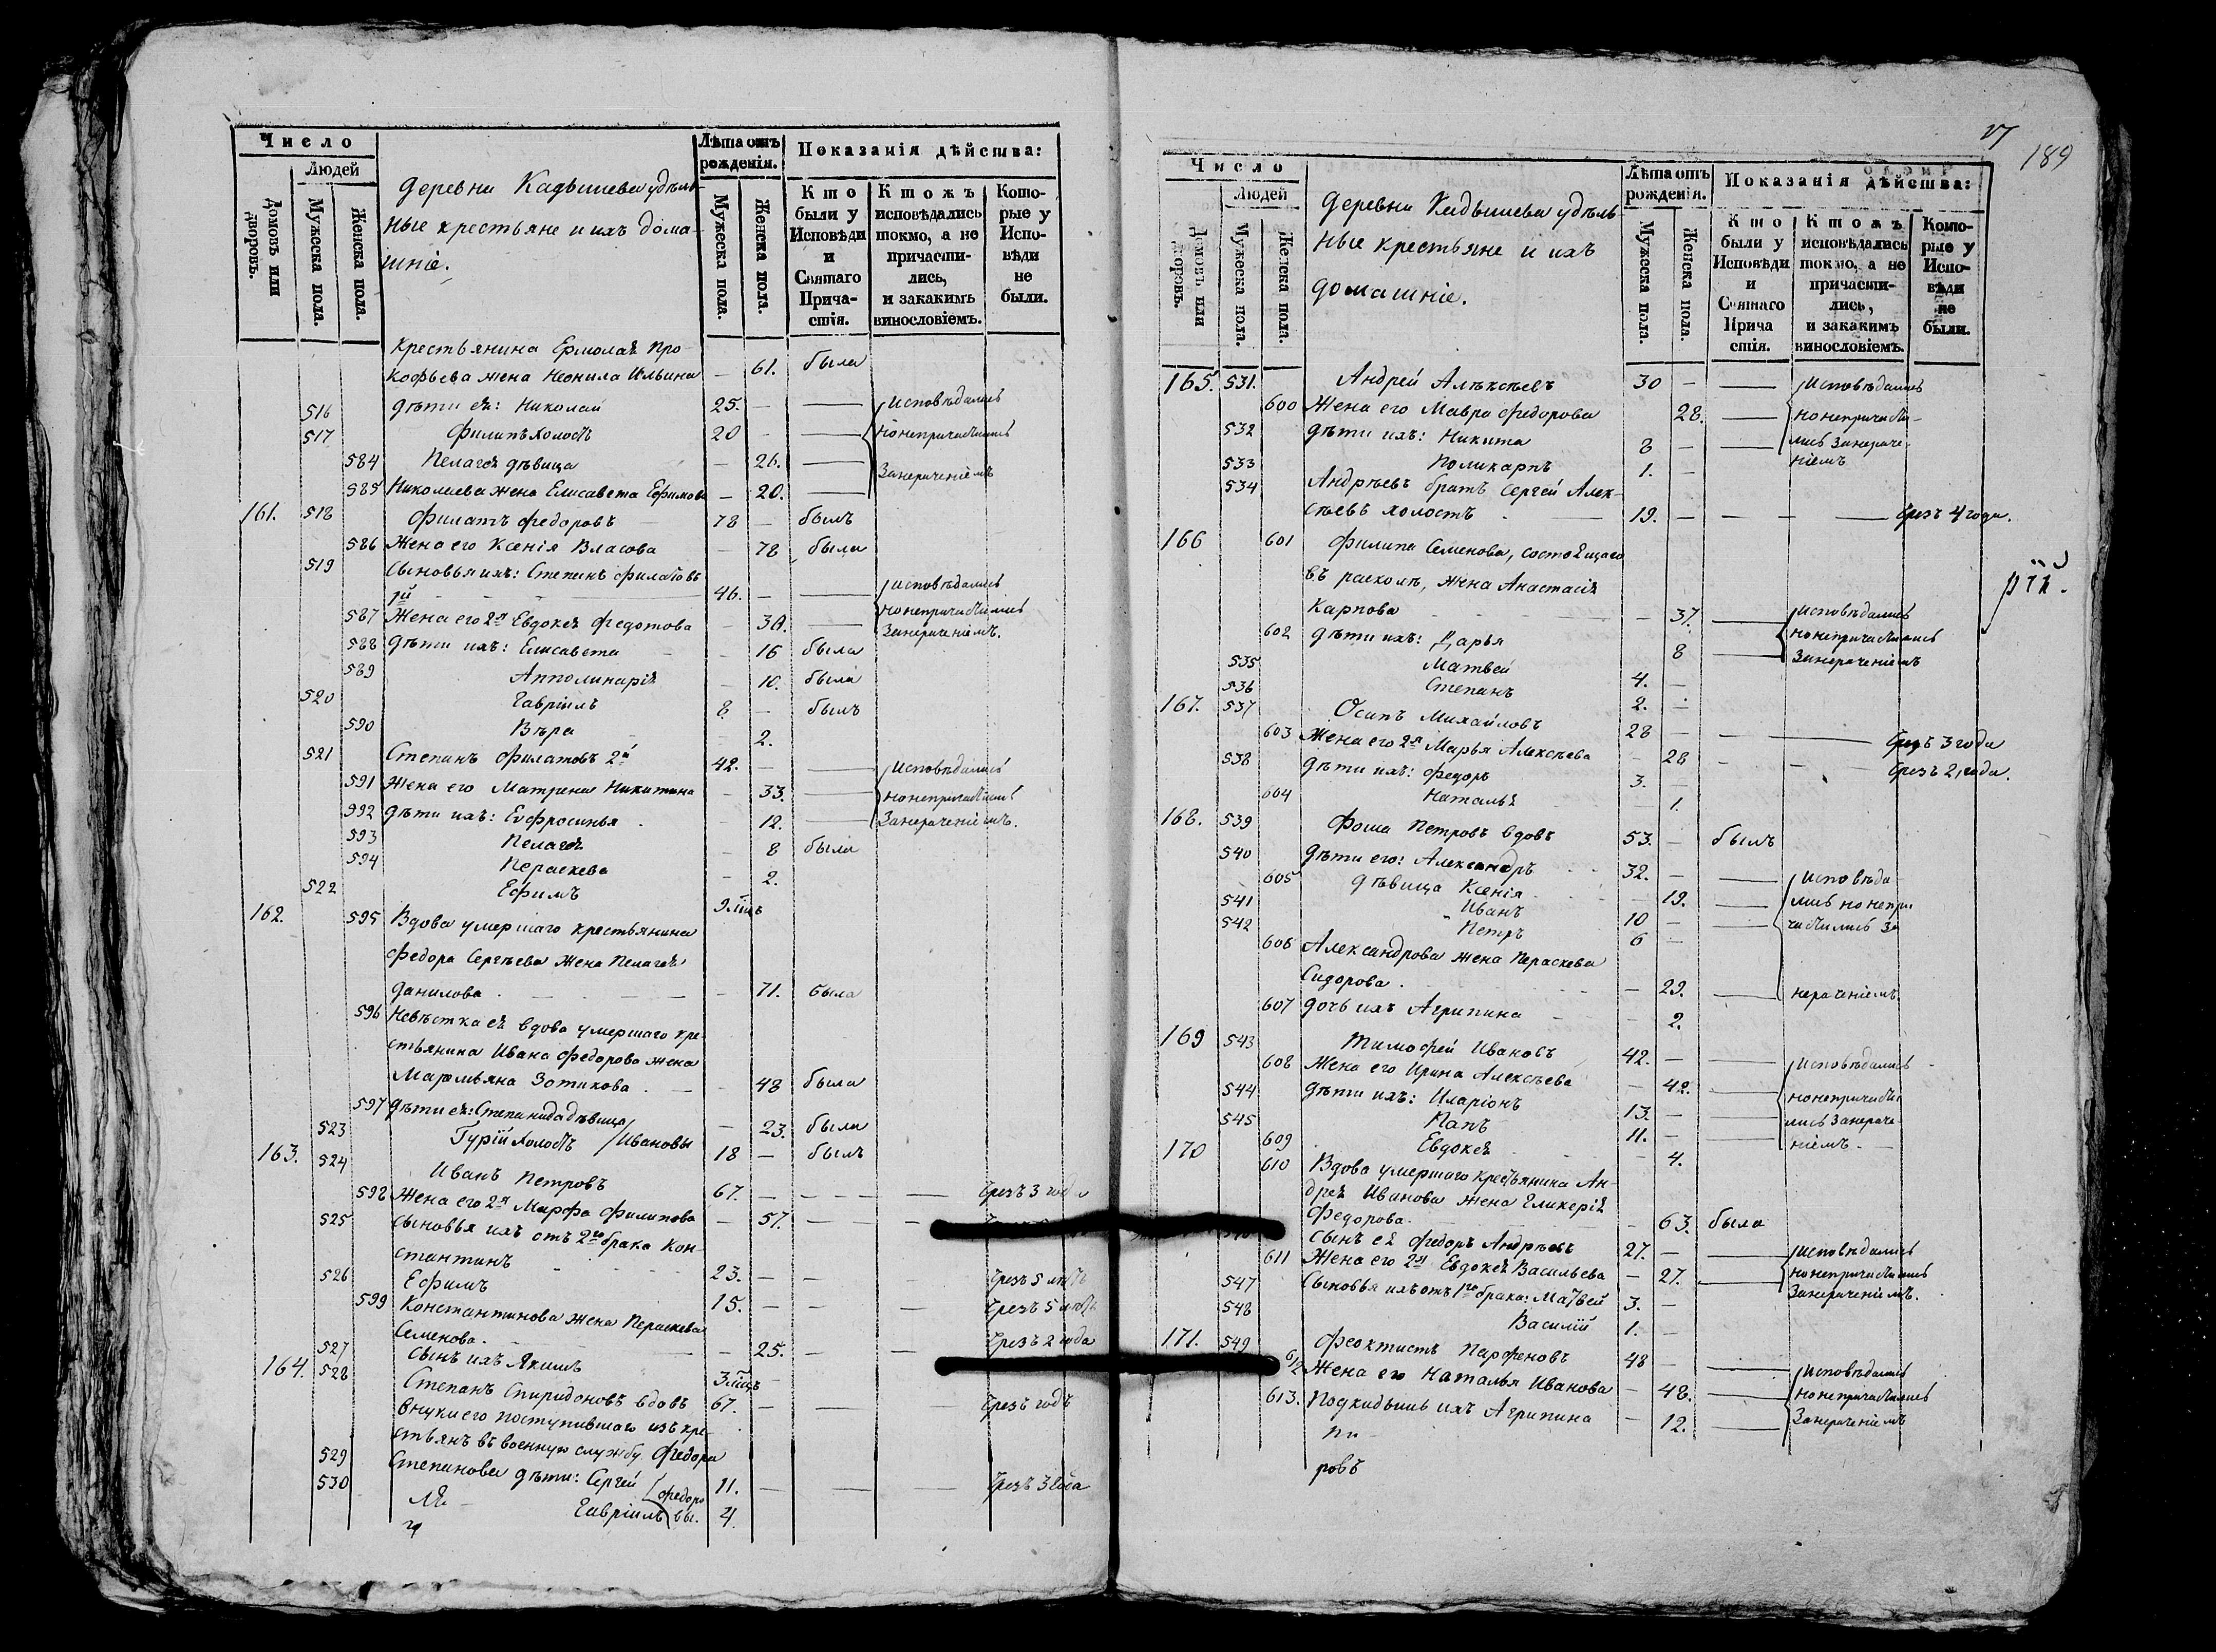 Число
Людей
Домовъ или дворовъ.
Мужеска пола.
Женска пола.
деревни Кадышева удѣль-
ные крестьяне и ихъ дома-
шніе.
Лѣта отъ рожденія.
Мужеска пола.
Женска пола.
Показанія дѣйства:
Кто были у Исповѣди и Святаго Прича- стія.
Ктожъ исповѣдались токмо, а не причасти- лись, и закакимъ винословіемъ.
Кото- рые у Испо- вѣди не были.
крестьянина Ермолая Про-
кофьева жена Неонила Ильина — 61. была
516 дѣти ея: Николай 25. — — исповѣдались
517 Филипъ холостъ 20 — — но непричастились
584 Пелагея дѣвица — 26. — Занераченіемъ
585 Николаева жена Елисавета Ефимова — 20. —
161. 518 Филатъ Федоровъ 78 — былъ
586 Жена его Ксенія Власова — 78 была
519 Сыновья ихъ: Степанъ Филатовъ
1й 46. — — исповѣдались
587 Жена его 2я Евдокея Федотова — 30. — но непричастились Занераченіемъ.
588 дѣти ихъ: Елисавета — 16 была
589 Апполинарія — 10. была
520 Гавріилъ 8 — былъ
590 Вѣра — 2.
521 Степанъ Филатовъ 2й 42. — — исповѣдались
591 Жена его Матрена Никитина — 33. — но непричастились
592 дѣти ихъ: Евфросинья — 12. — Занераченіемъ.
593 Пелагея — 8 была
594 Пераскева — 2.
522 Ефимъ 9 мцъ
162. 595 Вдова умершаго крестьянина
Федора Сергѣева жена Пелагея
Данилова — 71. была
596 Невѣстка ея вдова умершаго кре-
стьянина Ивана Федорова жена
Маремьяна Зотикова — 48 была
597 дѣти ея: Степанида дѣвица — 23. была
523 Гурій холостъ / Ивановы 18 — былъ
163. 524 Иванъ Петровъ 67. — — — Чрезъ 3 года
598 Жена его 2я Марфа Филипова — 57. — —
525 Сыновья ихъ отъ 2го брака Кон-
стантинъ 23. — — Чрезъ 5 лѣтъ
526 Ефимъ 15. — — — Чрезъ 5 лѣтъ
599 Константинова жена Пераскева
Семенова — 25. — — Чрезъ 2 года
527 сынъ ихъ Якимъ 3 мцъ
164. 528 Степанъ Спиридоновъ вдовъ 67. — — — Чрезъ годъ
Внуки его поступившаго изъ кре-
стьянъ въ военную службу Федора
529 Степанова дѣти: Сергей 11. — — — Чрезъ 3 года
530 Гавріилъ Федоровы. 4.
189
Число
Людей
Домовъ или дворовъ.
Мужеска пола.
Женска пола.
деревни Кадышева удѣль-
ные крестьяне и ихъ
домашніе.
Лѣта отъ рожденія.
Мужеска пола.
Женска пола.
Показанія дѣйства:
Кто были у Исповѣди и Святаго Прича стія.
Ктожъ исповѣдались токмо, а не причасти- лись, и закакимъ винословіемъ.
Кото- рые у Испо- вѣди не были.
165. 531. Андрей Алѣксѣевъ 30 — — исповѣдались
600 Жена его Мавра Федорова 28. — но непричасти-
532 дѣти ихъ: Никита 8 — — лись Занераче-
533 Поликарпъ 1. — ніемъ
534 Андрѣевъ братъ Сергей Алек-
сѣевъ холостъ 19. — — — — Чрезъ 4 года.
166 601 Филипа Семенова, состоящаго
въ расколѣ, жена Анастасія
Карпова — 37. — исповѣдались
602 дѣти ихъ: Дарья 8 — но непричастились Занераченіемъ
535 Матвей 4. —
536 Степанъ 2. —
167. 537 Осипъ Михайловъ 28 — — — Чрезъ 3 года
603 Жена его 2я Марья Алексѣева — 28 — — Чрезъ 2 года.
538 дѣти ихъ: Федоръ 3. —
604 Наталья — 1.
168. 539 Фома Петровъ вдовъ 53. — былъ
540 дѣти его: Александръ 32. — — исповѣда-
605 дѣвица Ксенія — 19. — лись но непри
541 Иванъ 10 — — частились За
542 Петръ 6 —
606 Александрова жена Пераскева
Сидорова — 29. — нераченіемъ.
607 дочь ихъ Агрипина — 2.
169 543 Тимофей Ивановъ 42. — — исповѣдались
608 Жена его Ирина Алексѣева — 42. — но непричасти
544 дѣти ихъ: Иларіонъ 13. — — лись Занераче
545 Папъ 11. — — ніемъ.
609 Евдокея — 4.
170 610 Вдова умершаго крестьянина Ан-
дрея Иванова жена Гликерія
Федорова — 63. была
сынъ ея Федоръ Андрѣевъ 27. — — исповѣдались
611 Жена его 2я Евдокея Васильева — 27. — но непричастились
547 Сыновья ихъ отъ 1го брака: Матвей 3. — Занераченіемъ.
548 Василій 1. —
171. 549 Феоктистъ Парфеновъ 48 — — исповѣдались
612 Жена его Наталья Иванова — 48. — но непричастились
613. Подкидышь ихъ Агрипина — 12. — Занераченіемъ
ровъ